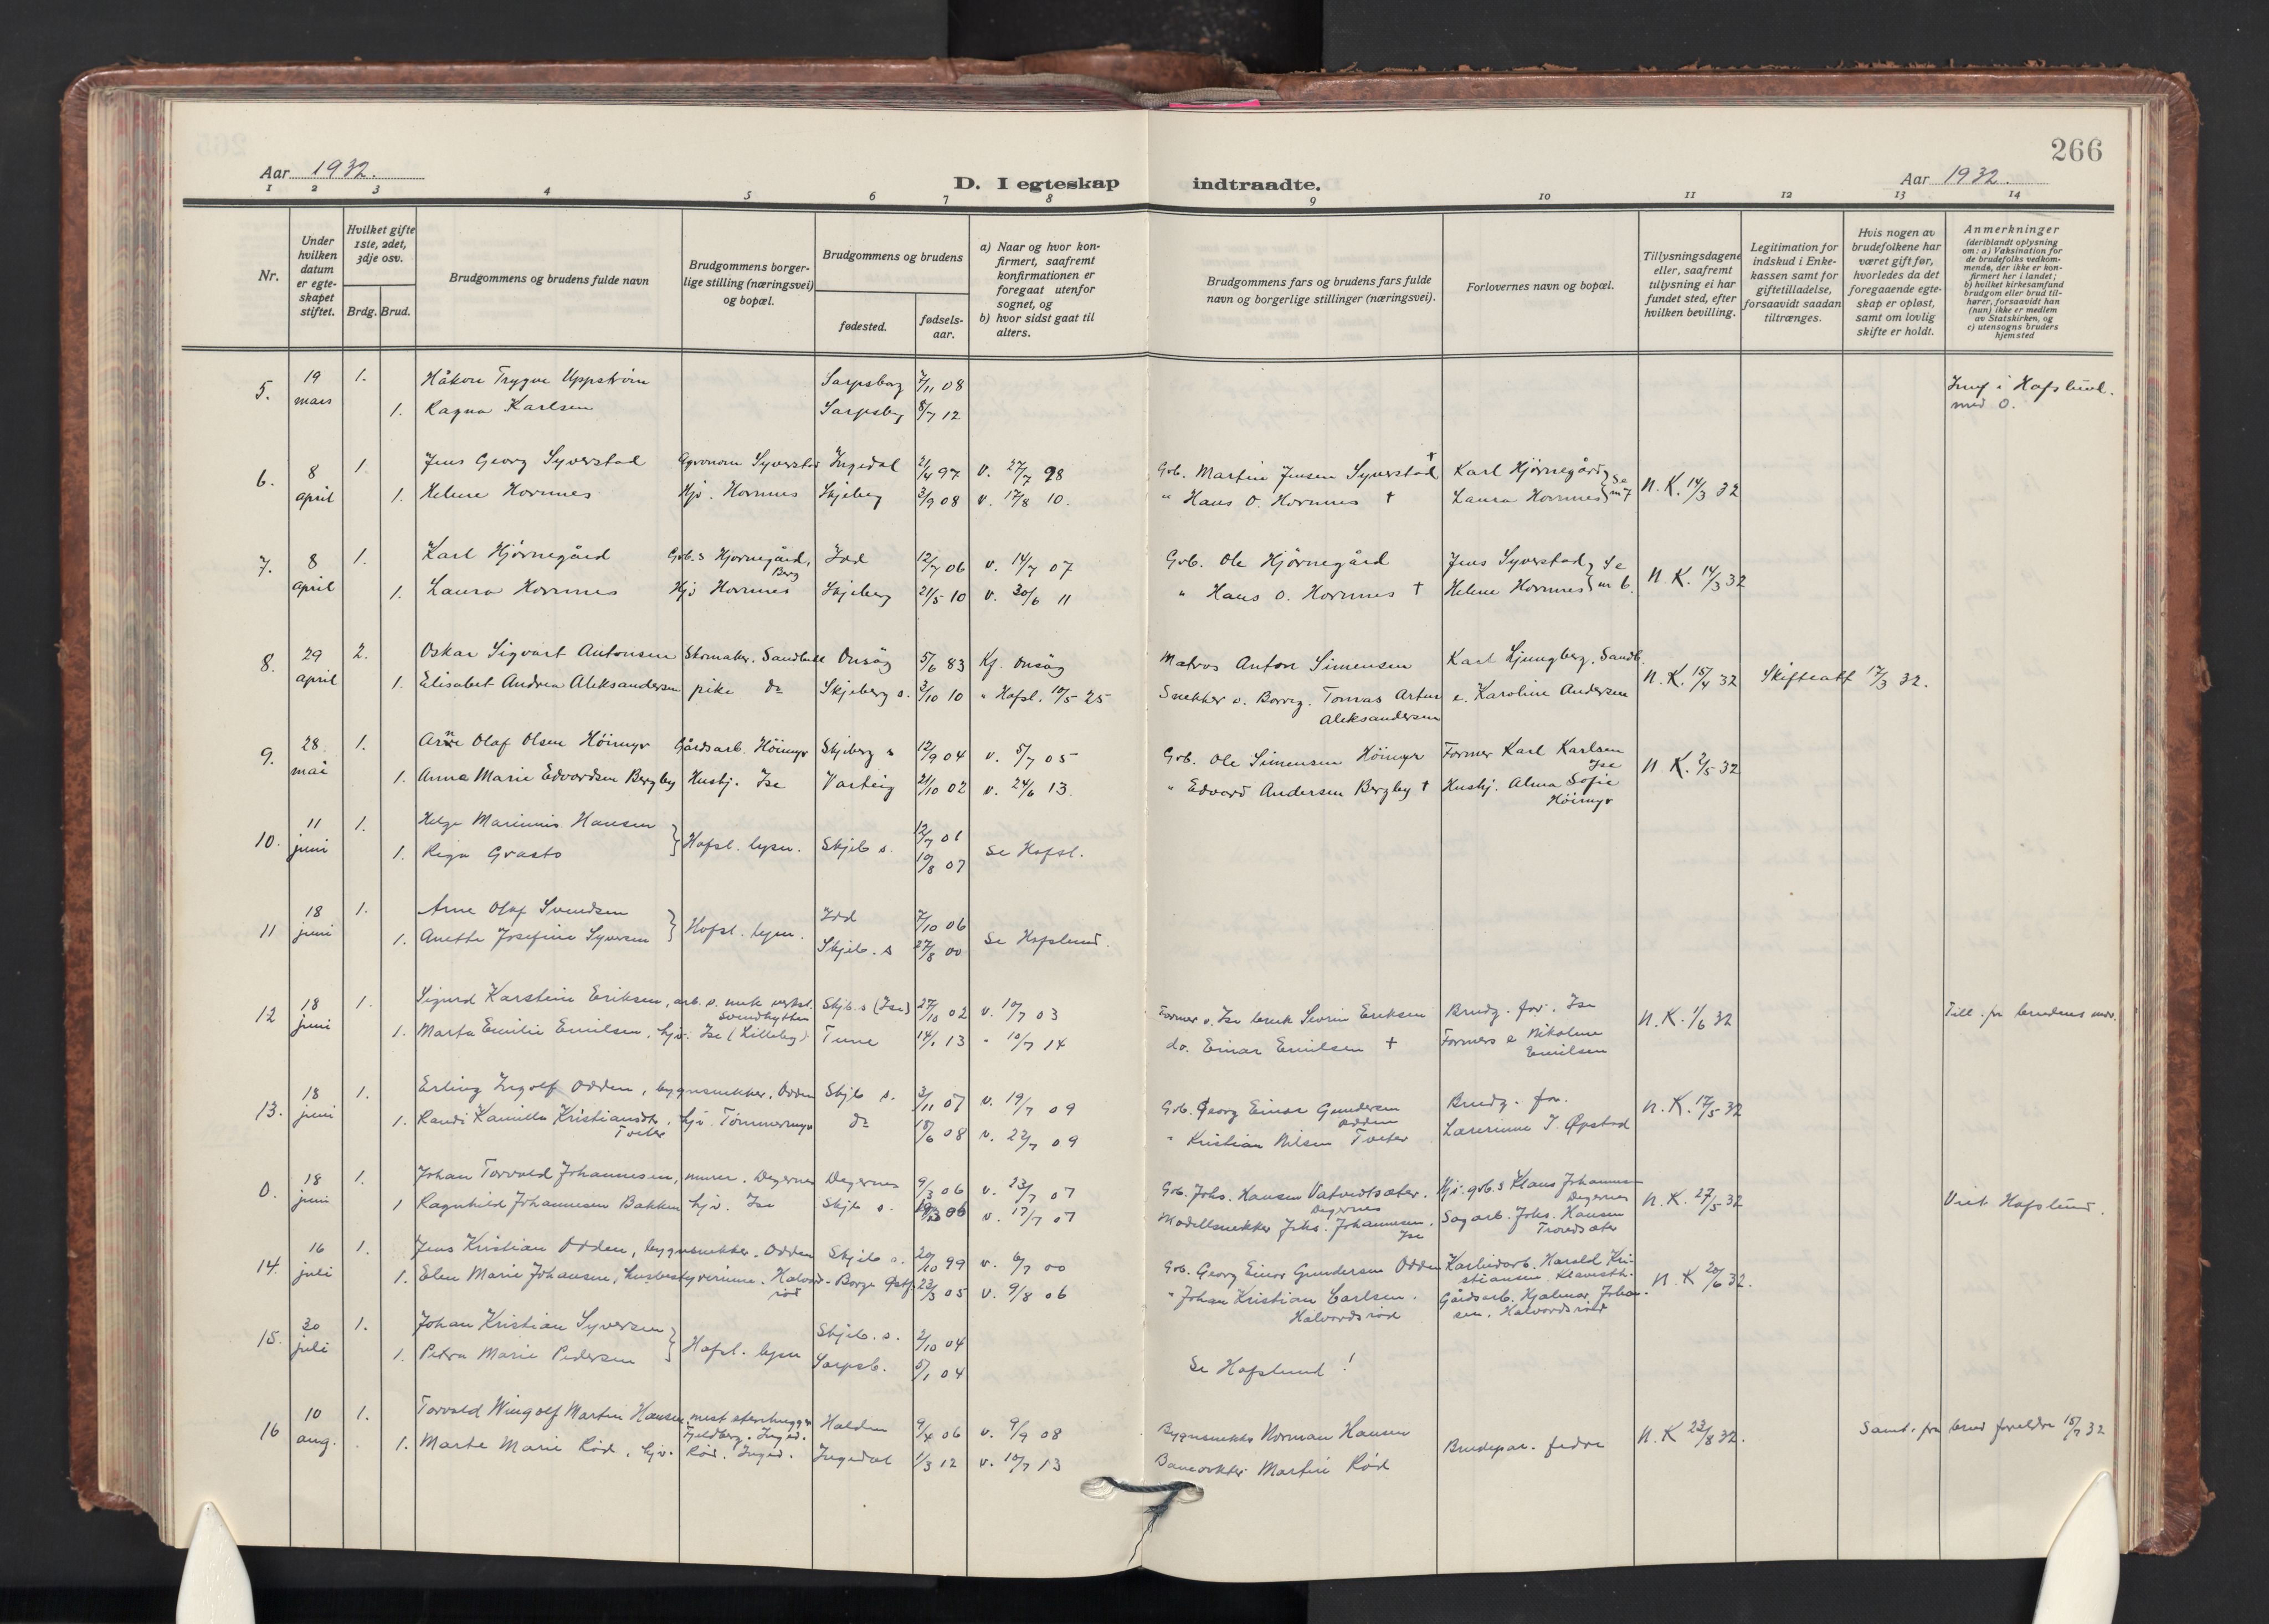 266
Aar 1932.
D. I egteskap indtraadte.
Aar 1932.
1 2 3 4 5 6 7 8 9 10 11 12 13 14
Nr.
Under hvilken datum er egteskapet stiftet.
Hvilket gifte 1ste, 2det, 3dje osv.
Brdg. Brud.
Brudgommens og brudens fulde navn
Brudgommens borgerlige stilling (næringsvei) og bopæl.
Brudgommens og brudens
fødested.
fødselsaar.
a) Naar og hvor konfirmert, saafremt konfirmationen er foregaat utenfor sognet, og
b) hvor sidst gaat til alters.
Brudgommens fars og brudens fars fulde navn og borgerlige stillinger (næringsvei).
Forlovernes navn og bopæl.
Tillysningsdagene eller, saafremt tillysning ei har fundet sted, efter hvilken bevilling.
Legitimation for indskud i Enkekassen samt for giftetilladelse, forsaavidt saadan tiltrænges.
Hvis nogen av brudefolkene har været gift før, hvorledes da det foregaaende egteskap er opløst, samt om lovlig skifte er holdt.
Anmerkninger
(deriblandt oplysning om: a) Vaksination for de brudefolks vedkommende, der ikke er konfirmert her i landet; b) hvilket kirkesamfund brudgom eller brud tilhører, forsaavidt han (hun) ikke er medlem av Statskirken, og c) utensogns bruders hjemsted
5. 19 mars 1. Håkon Trygve Uppström Sarpsborg 7/11 08 i Hafslund.
1. Ragna Karlsen Sarpsbg 8/7 12 med 0.
6. 8 april 1. Jens Georg Syverstad Agronom Syverstad Ingedal 21/4 97 v. 27/7 98 Gb. Martin Jensen Syverstad † Karl Hjørnegård Se N. K. 14/3 32
1. Helene Hornnes Hjv. Hornnes Skjeberg 3/9 08 v. 17/8 10. " Hans O. Hornnes † Laura Hornnes nr 7
7. 8 april 1. Karl Hjørnegård Gb.s Hjørnegård, Berg Idd 12/7 06 v. 14/7 07 Gb. Ole Hjørnegård Jens Syverstad Se N. K. 14/3 32
1. Laura Hornnes Hjv Hornnes Skjeberg 21/5 10 v. 20/6 11 " Hans O. Hornnes † Helene Hornnes nr 6.
8. 29 april 2. Oskar Sigvart Antonsen Skomaker. Sandbakk Onsöy 5/6 83 Kf. Onsöy Matros Anton Simensen Karl Ljungberg, Sandb. N. K. 15/4 32 Skifteatt 17/3 32.
1. Elisabet Andrea Aleksandersen pike do Skjeberg s. 3/10 10 " Hafsl. 10/5 25 Snekker v. Borreg. Tomas Artur Aleksandersen e. Karoline Andersen
9. 28 mai 1. Arne Olaf Olsen Höimyr Gårdsarb. Höimyr Skjeberg s 12/9 04 v. 5/7 05 Gb. Ole Simensen Höimyr Former Karl Karlsen Ise N. K. 2/5 32
1. Anna Marie Edvardsen Bergby Hushj. Ise Varteig 21/10 02 v. 24/6 13. " Edvard Andersen Bergby † Hushj. Alma Sofie Höimyr
10. 11 juni 1. Helge Marinius Hansen Hafsl. lysn. Skjeb s. 12/7 01 Se Hafsl.
1. Grasto 19/8 07
11 18 juni 1. Arne Olaf Svendsen Hafsl. lysn. Idd 7/10 06 Se Hafslund.
1. Anette Josefine Syversen Skjeb. s 27/8 00
12 18 juni 1. Sigurd Karstein Eriksen, arb. v. mek verkst. Skjb. s (Ise) 27/10 02 v. 10/7 03 Former v. Ise bruk Severin Eriksen Brudg. far. Ise N. K. 1/6 32 Till. fra brudens mor.
1. Marta Emilie Emilsen, hjv. Ise (Lilleby) Tune 14/1 13 - 10/7 14 do. Einar Emilsen † Formers e Nikoline Emilsen
13. 18 juni 1. Erling Ingolf Odden, bygnsnekker. Odden Skjb s. 3/11 07 v. 19/7 09 Gb. Georg Einar Gundersen Odden Brudg. far. N. K. 17/5 32
1. Randi Kamilla Kristiansdtr. Tveter, hjv. Tömmermyr do 18/6 08 v. 22/7 09 " Kristian Nilsen Tveter Lærerinne J. Opstad
0. 18 juni 1. Johan Torvald Johannesen, murer. Degernes Degernes 9/3 06 v. 23/7 07 Gb. Johs. Hansen Vatvedtsæter. Degernes Hj. gb.s Klaus Johannes- Degernes N. K. 27/5 32 Viet Hafslund.
1 Ragnhild Johannesen Bakken hjv. Ise Skjb s. 06 v. 17/7 07 Modellsnekker Johs. Johannesen. Ise Sagarb. Johs. Hansen
14. 16 juli 1. Jens Kristian Odden, bygnsnekker. Odden Skjeb s. 20/10 99 v. 6/7 00 Gb. Georg Einar Gundersen Odden Karbidarb. Harald Kristiansen. N. K 20/6 32.
1. Elen Marie Johansen, husbestyrerinne. Halvordsröd Borge Østf. 23/3 05 v. 9/8 06 " Johan Kristian Carlsen. Halvordsröd Gårdsarb. Hjalmar Johansen. Halvordsröd
15. 30 juli 1. Johan Kristian Syversen Hafsl. lysn Skjeb. s. 2/10 04 Se Hafslund!
1. Petra Marie Pedersen Sarpsb. 5/1 04
16 10 aug. 1. Torvald Wingolf Martin Hansen Fjeldberg. Inged. Halden 9/4 06 v. 9/9 08 Bygnsnekk Norman Hansen Brudepar. fedre N. K 23/8 32. Samt. fra brud foreldre 15/7 32
1. Marte Marie Röd, hjv. Röd. Inged. Ingedal 1/3 12 v. 10/7 13 Banevokter Martin Röd